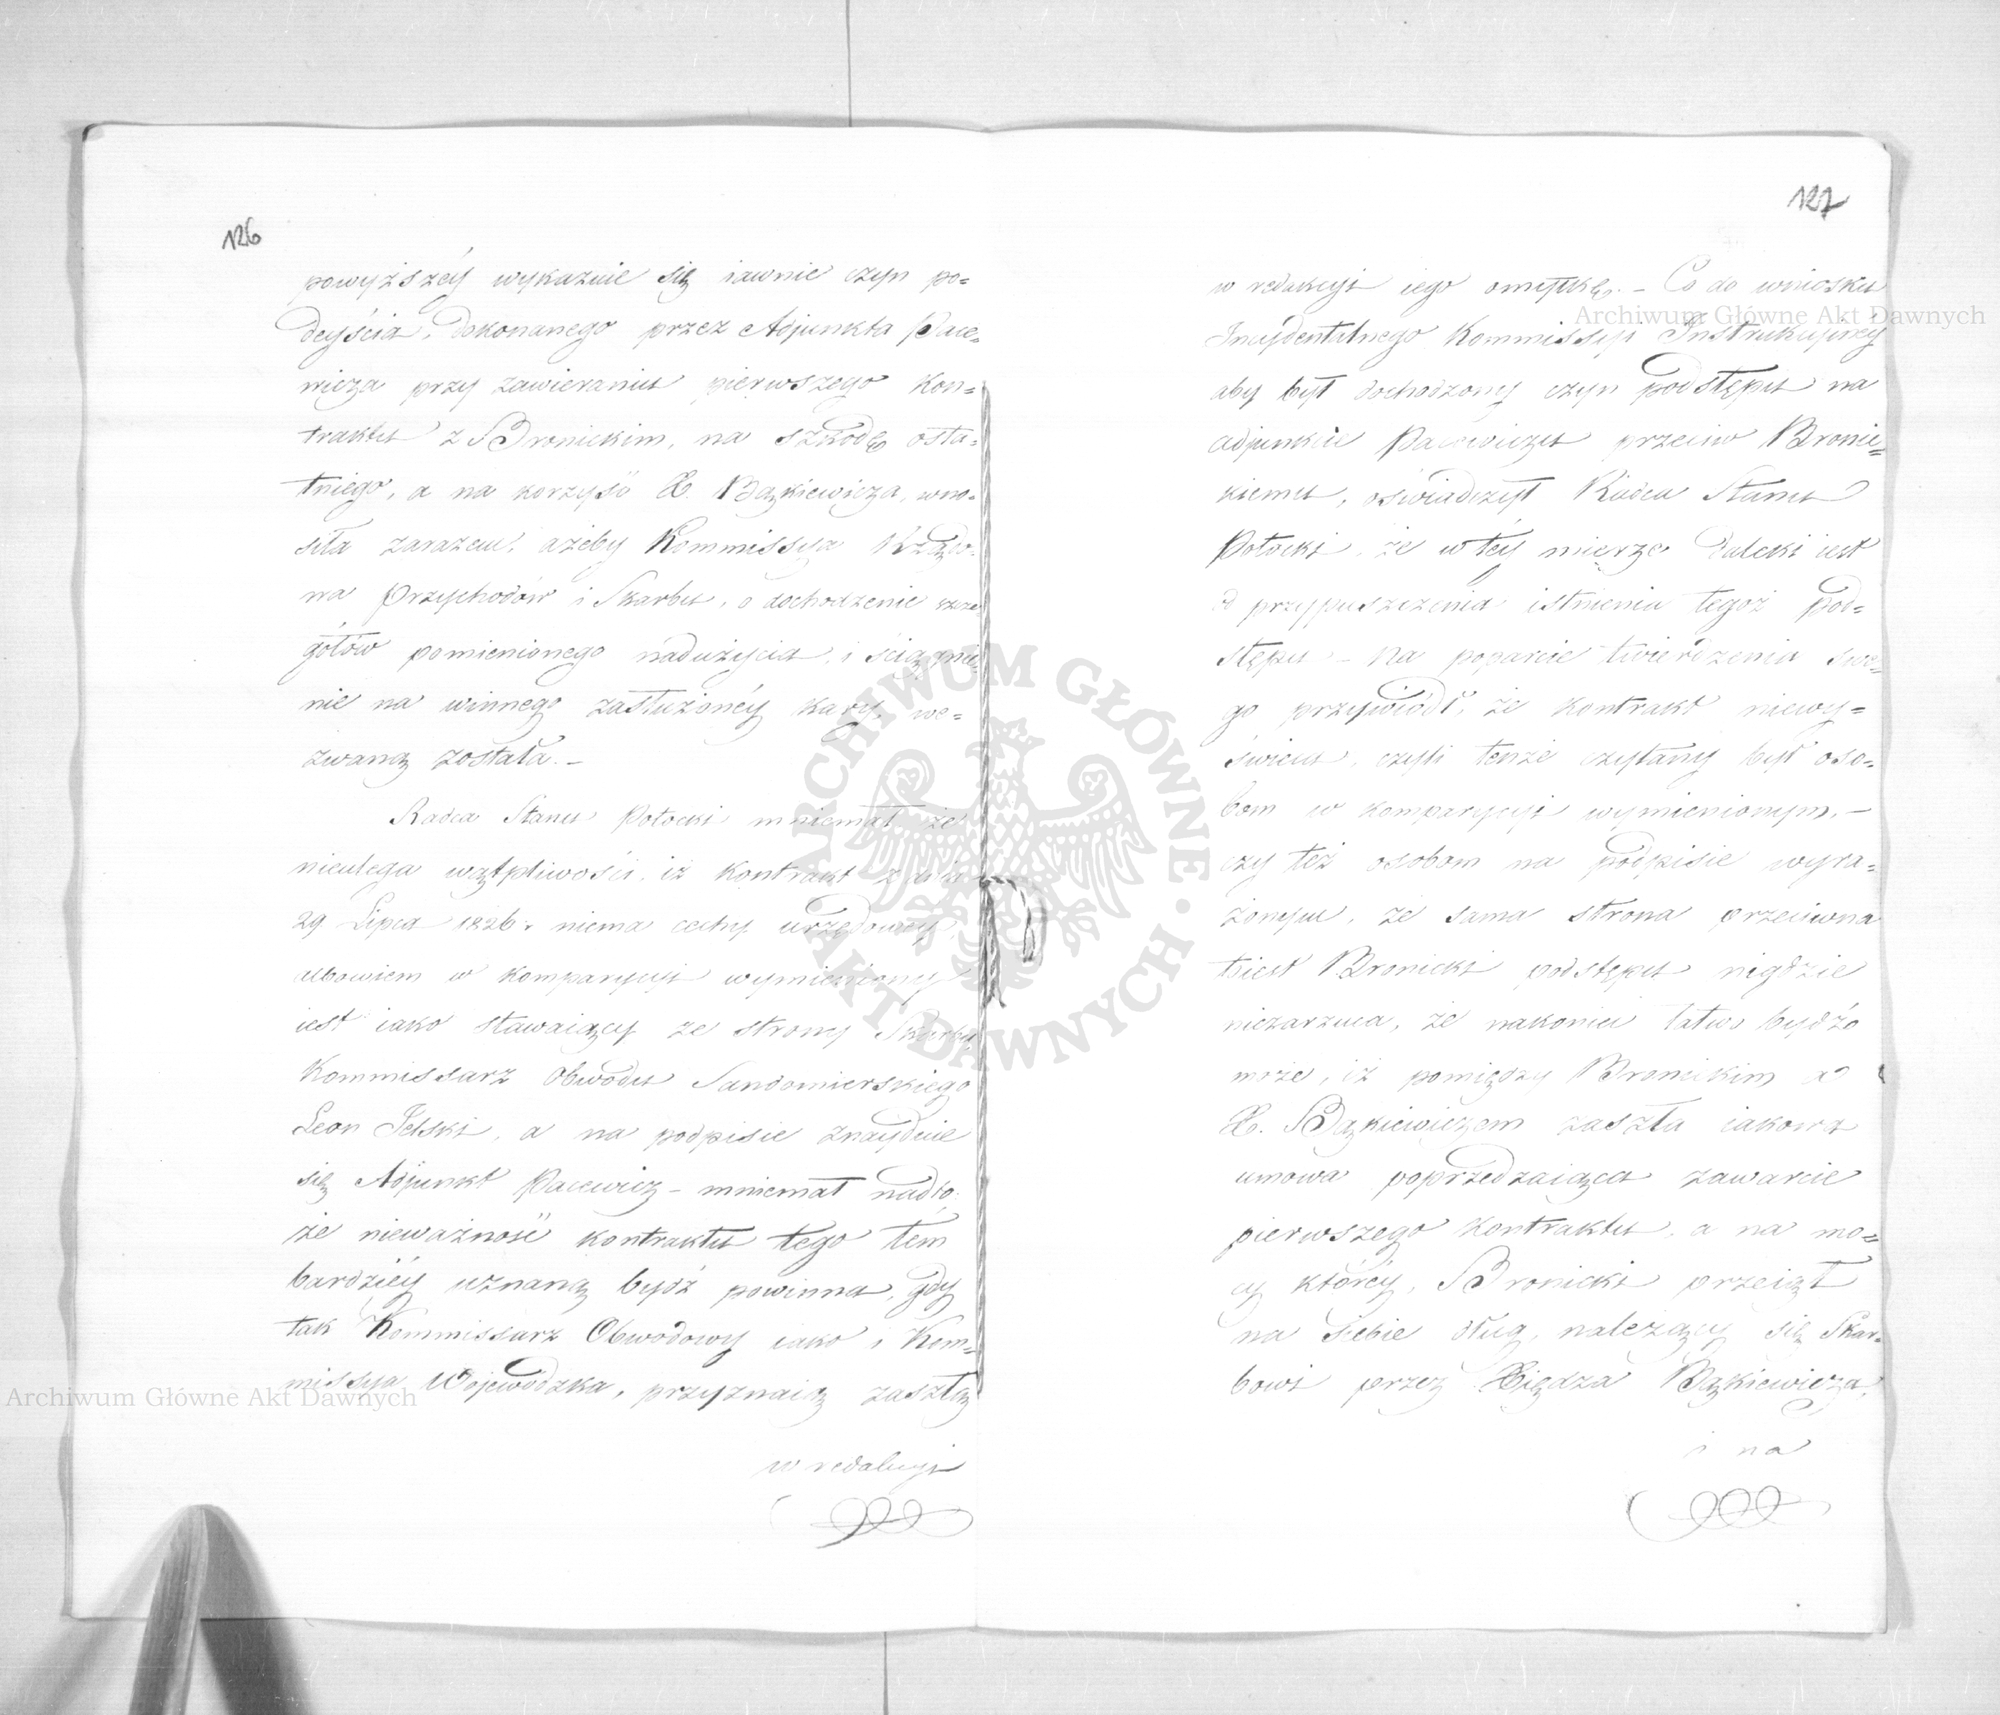 126
powyższéy wykazuie się iawnie czyn po-
deyścia, dokonanego przez Adjunkta Pace-
wicza przy zawieraniu pierwszego Kon-
traktu z Bronickim, na szkodę osta-
tniego, a na korzyść X. Bązkiewicza, wno-
siła zarazem, ażeby Kommissya Rządo-
wa Przychodów i Skarbu, o dochodzenie szcze-
gółów pomienionego nadużycia, i ściągnie-
nie na winnego zasłużonéy kary, we-
zwaną została. –
Radca Stanu Potocki mniemał że
nieulega wątpliwości, iż Kontrakt z dnia
29 Lipca 1826 r. niema cechy urzędowey,
albowiem w komparycyi wymieniony
iest iako stawaiący ze strony Skarbu
Kommissarz Obwodu Sandomierskiego
Leon Jelski, a na podpisie znayduie
się Adjunkt Pacewicz – mniemał nadto,
że nieważność kontraktu tego tém
bardziéy uznaną bydź powinna, gdy
tak Kommissarz Obwodowy iako i Kom-
missya Wojewódzka, przyznaią zaszłą
w redakcyi
127
w redakcyi iego omyłkę. – Co do wniosku
Incydentalnego Kommissyi Instrukcyiney
aby był dochodzony czyn podstępu na
adjunkcie Pacewiczu przeciw Bronic-
kiemu, oświadczył Radca Stanu
Potocki, że w téy mierze daleki iest
od przypuszczenia istnienia tegoż pod-
stępu – na poparcie twierdzenia swe-
go przywiódł, że kontrakt niewy-
świeca, czyli tenże czytany był oso-
bom w komparycyi wymienionym, –
czy też osobom na podpisie wyra-
żonym, że sama strona przeciwna
to iest Bronicki podstępu nigdzie
niezarzuca, że nakoniec łatwo bydź
może, iż pomiędzy Bronickim a
X. Bązkiewiczem zaszła iakowa
umowa poprzedzaiąca zawarcie
pierwszego Kontraktu, a na mo-
cy któréy, Bronicki przeiął
na siebie dług, należący się Skar-
bowi przez Xiędza Bązkiewicza,
i na
Archiwum Główne Akt Dawnych
Archiwum Główne Akt Dawnych
ARCHIWUM GŁÓWNE • AKT DAWNYCH •